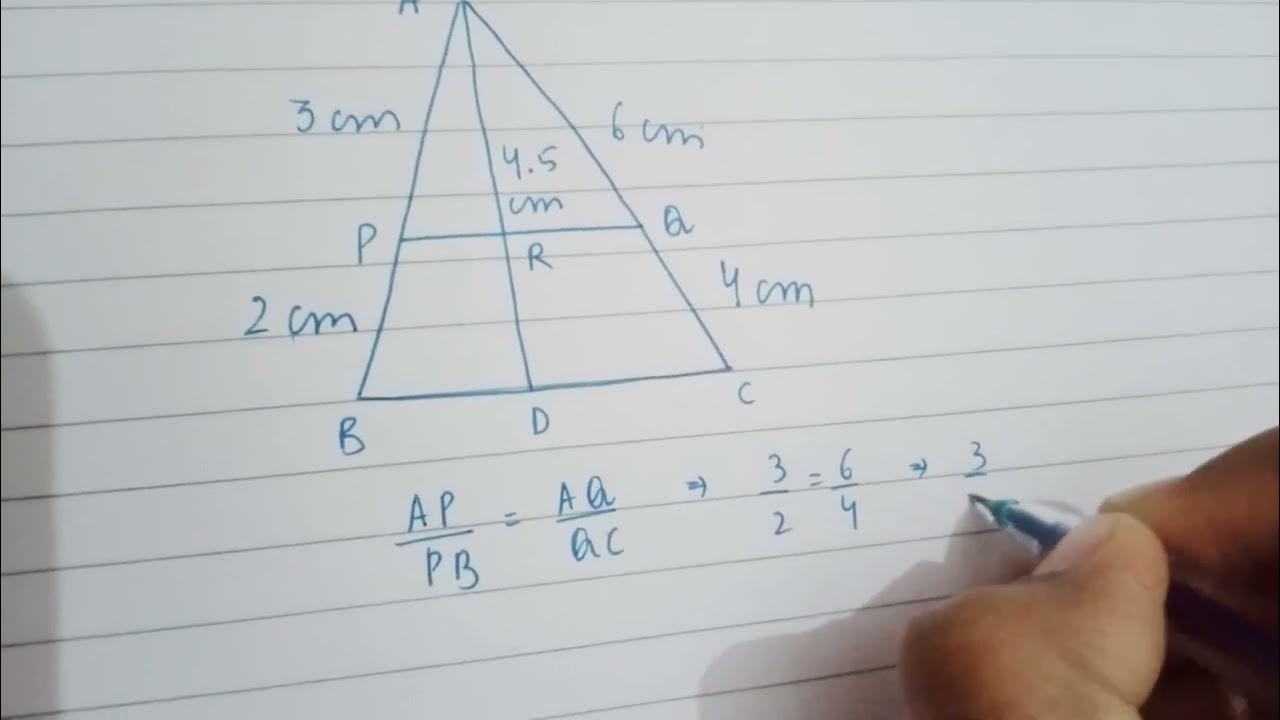 A
3 cm
6 cm
4.5
cm
P
Q
R
2 cm
4 cm
B
D
C
AP/PB = AQ/QC ⇒ 3/2 = 6/4 ⇒ 3/